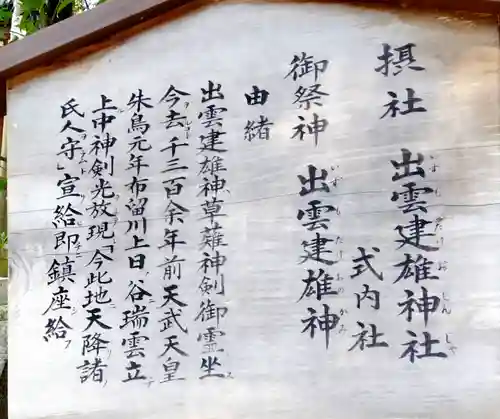 摂社 出雲建雄神社
式内社
御祭神 出雲建雄神
由緒
出雲建雄神草薙神剣御霊坐ス
今去ヿ千三百余年前天武天皇
朱鳥元年布留川上日ノ谷瑞雲立
上中神剣光放現「今此地ニ天降諸
氏人守」宣給即鎮座給